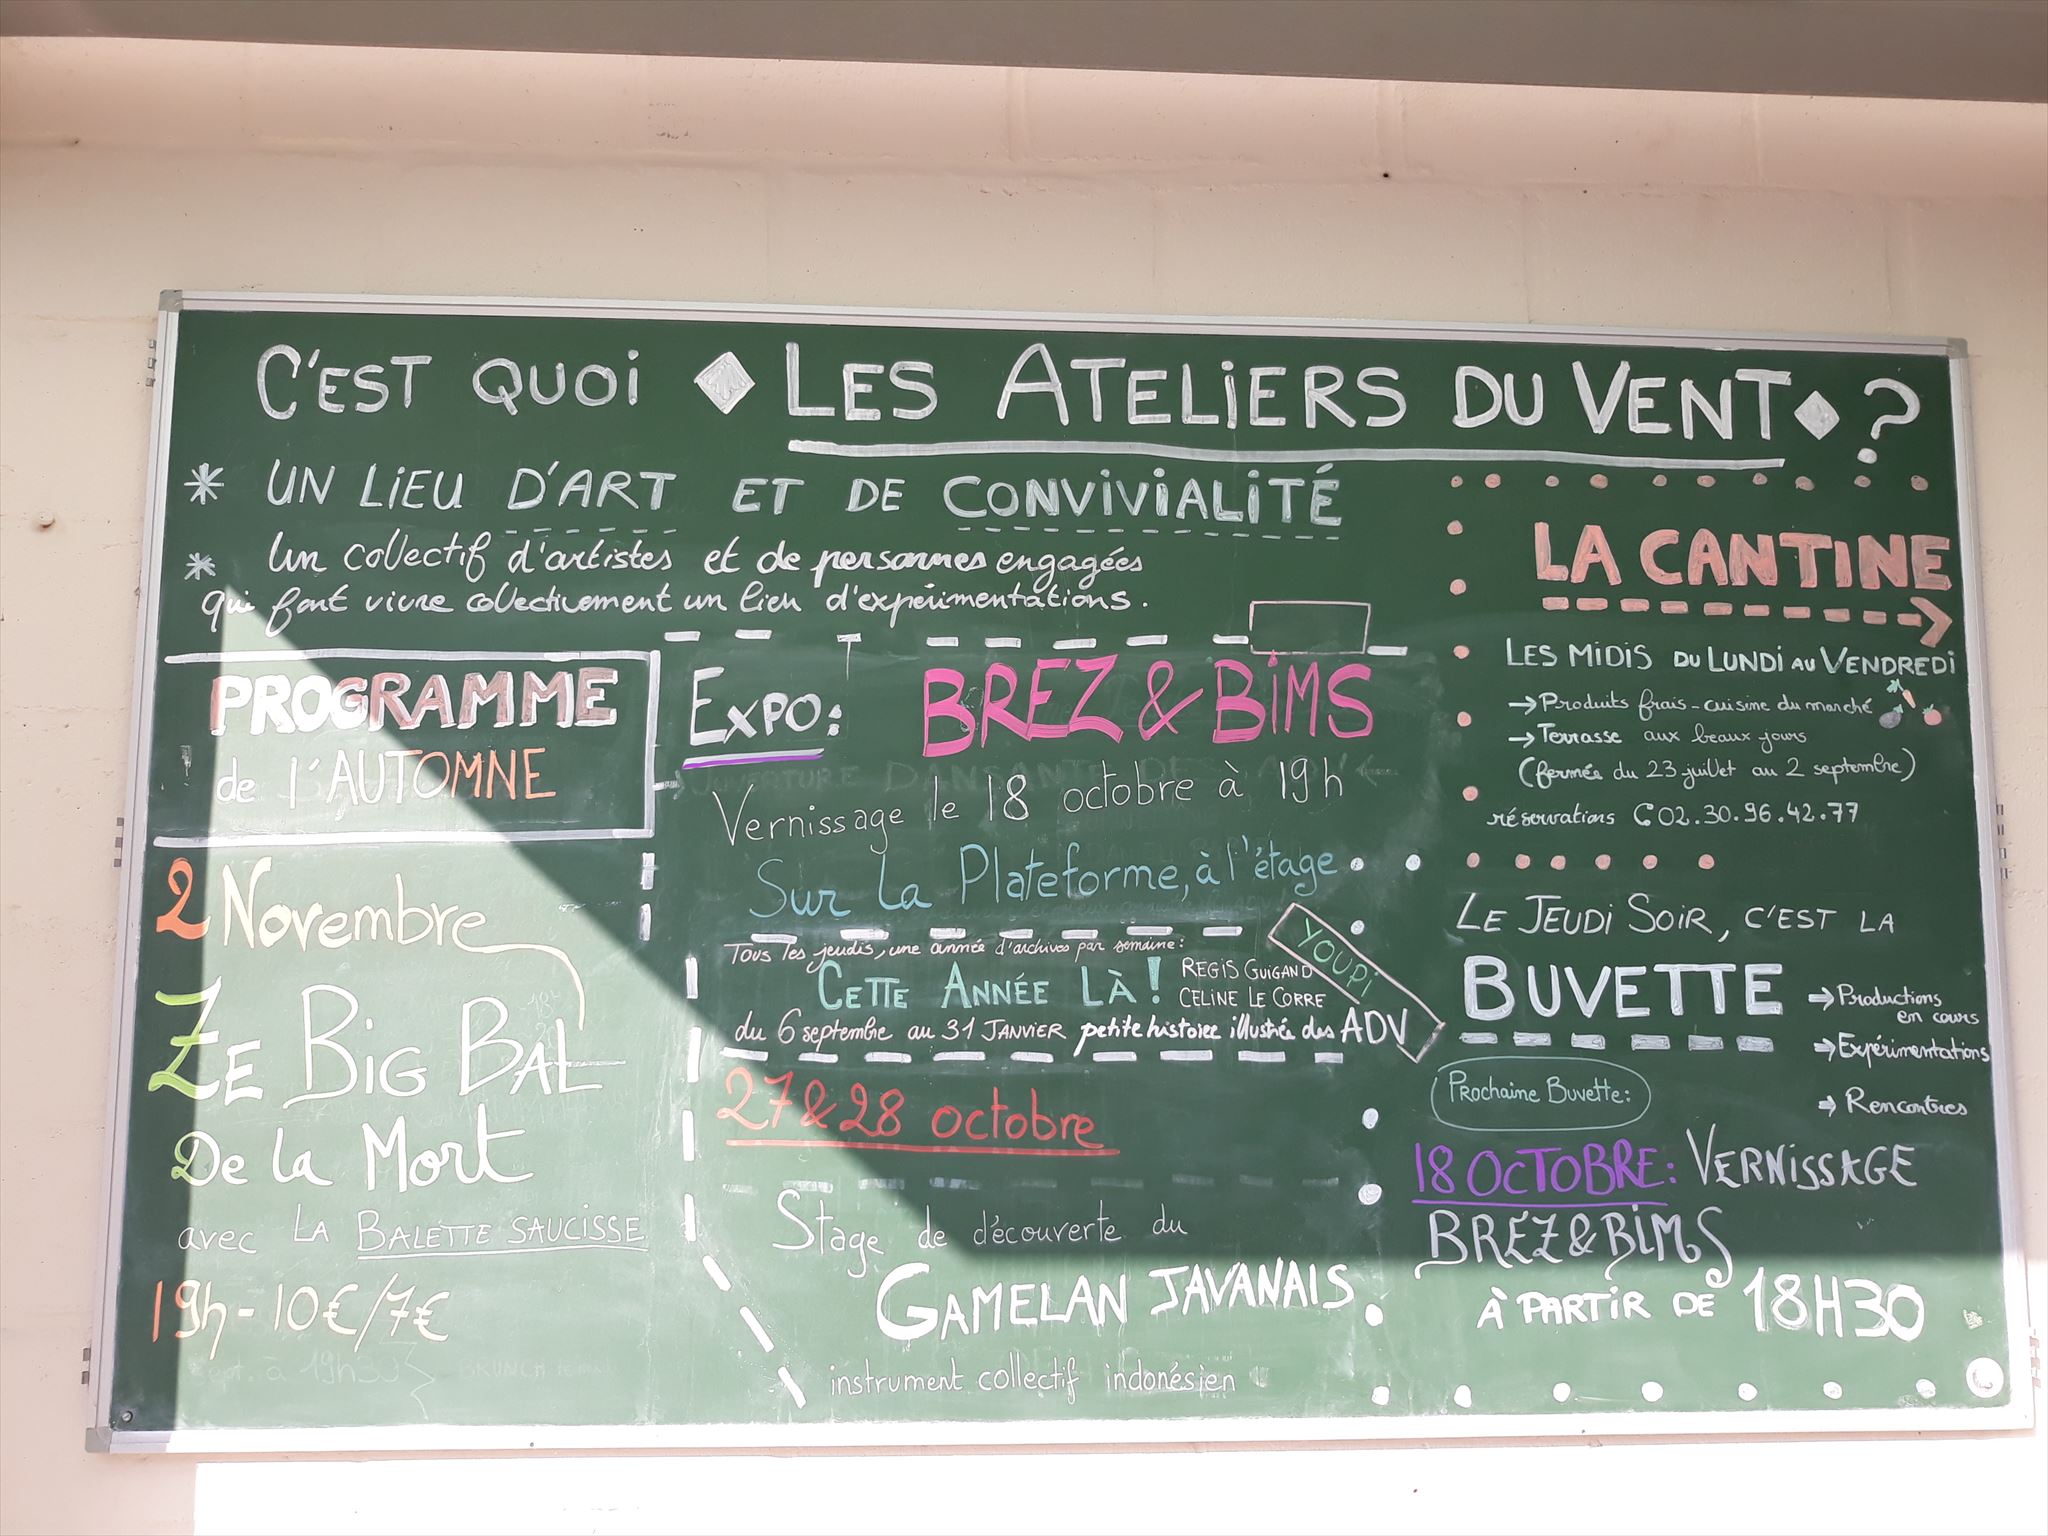 C'EST QUOI LES ATELIERS DU VENT ?
* UN LIEU D'ART ET DE CONVIVIALITÉ
* Un collectif d'artistes et de personnes engagées
qui font vivre collectivement un lieu d'expérimentations.
PROGRAMME
de l'AUTOMNE
2 Novembre
ZE BIG BAL
De la Mort
avec LA BALETTE SAUCISSE
19h - 10€/7€
EXPO: BREZ & BIMS
Vernissage le 18 octobre à 19h
Sur la Plateforme, à l'étage
Tous les jeudis, une année d'archives par semaine:
CETTE ANNÉE LÀ !
REGIS GUIGAND
CELINE LE CORRE
du 6 septembre au 31 JANVIER petite histoire illustrée des ADV
YOUPI
27 & 28 octobre
Stage de découverte du
GAMELAN JAVANAIS
instrument collectif indonésien
LA CANTINE
LES MIDIS DU LUNDI AU VENDREDI
→ Produits frais - cuisine du marché
→ Terrasse aux beaux jours
(fermée du 23 juillet au 2 septembre)
réservations 02.30.96.42.77
LE JEUDI SOIR, C'EST LA
BUVETTE
→ Productions
en cours
→ Expérimentations
→ Rencontres
Prochaine Buvette:
18 OCTOBRE: VERNISSAGE
BRÉZ & BIMS
À PARTIR DE 18H30